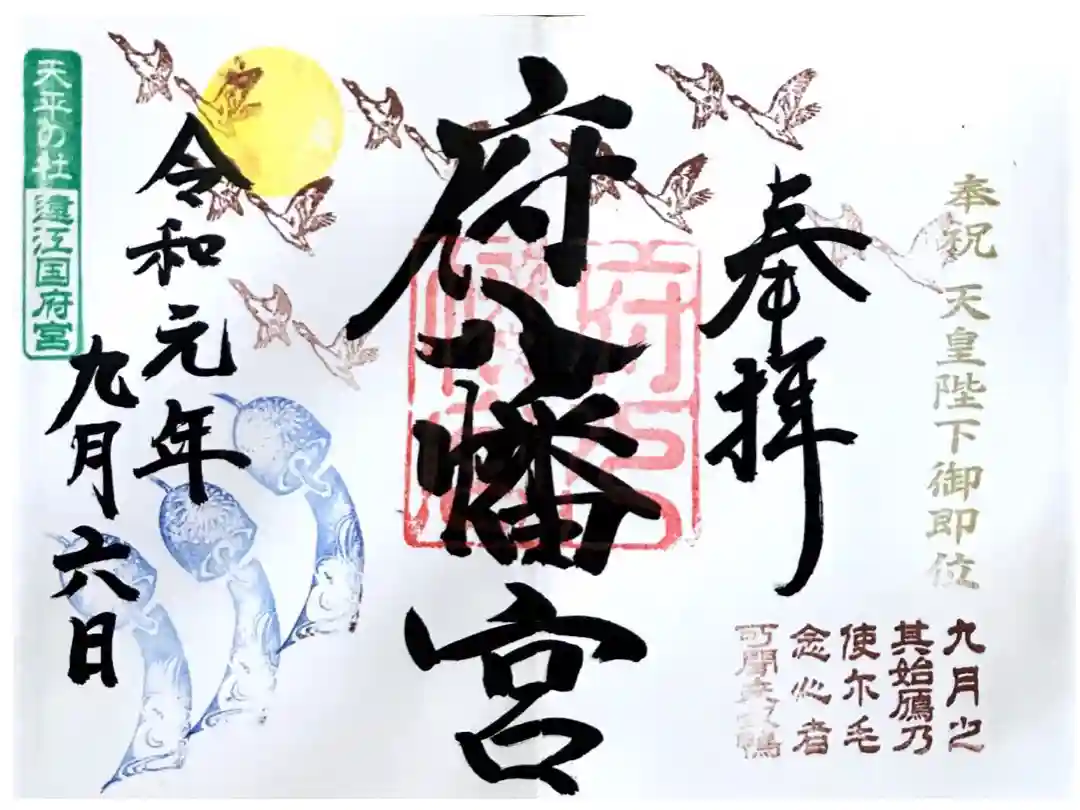 奉祝 天皇陛下御即位
九月之
其始鴈乃
使尓毛
念心者
可聞来奴鴨
奉拝
府八幡宮
令和元年
九月六日
天平の杜 遠江国府宮